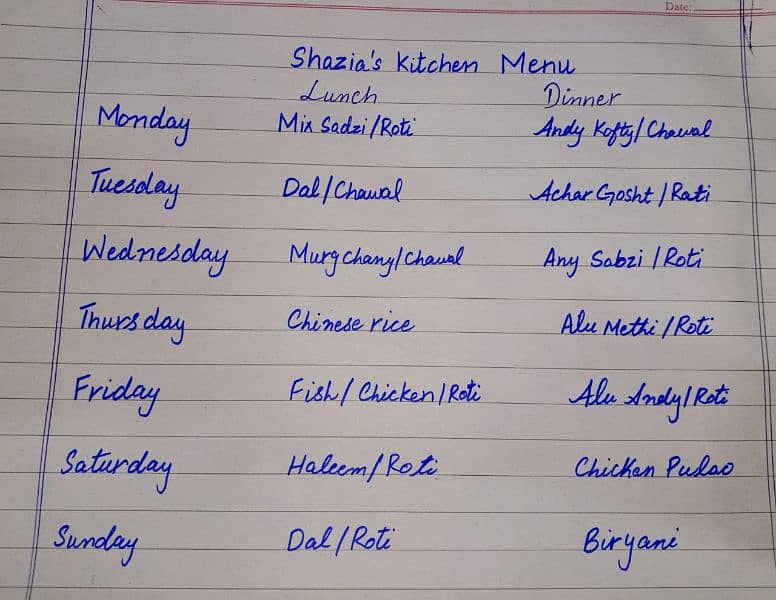 Date:
Shazia's Kitchen Menu
Lunch Dinner
Monday Mix Sadzi/Roti Andy Kofty/Chawal
Tuesday Dal/Chawal Achar Gosht/Rati
Wednesday Murg chany/Chawal Any Sabzi/Roti
Thursday Chinese rice Alu Methi/Roti
Friday Fish/Chicken/Roti Alu Andy/Roti
Saturday Haleem/Roti Chicken Pulao
Sunday Dal/Roti Biryani